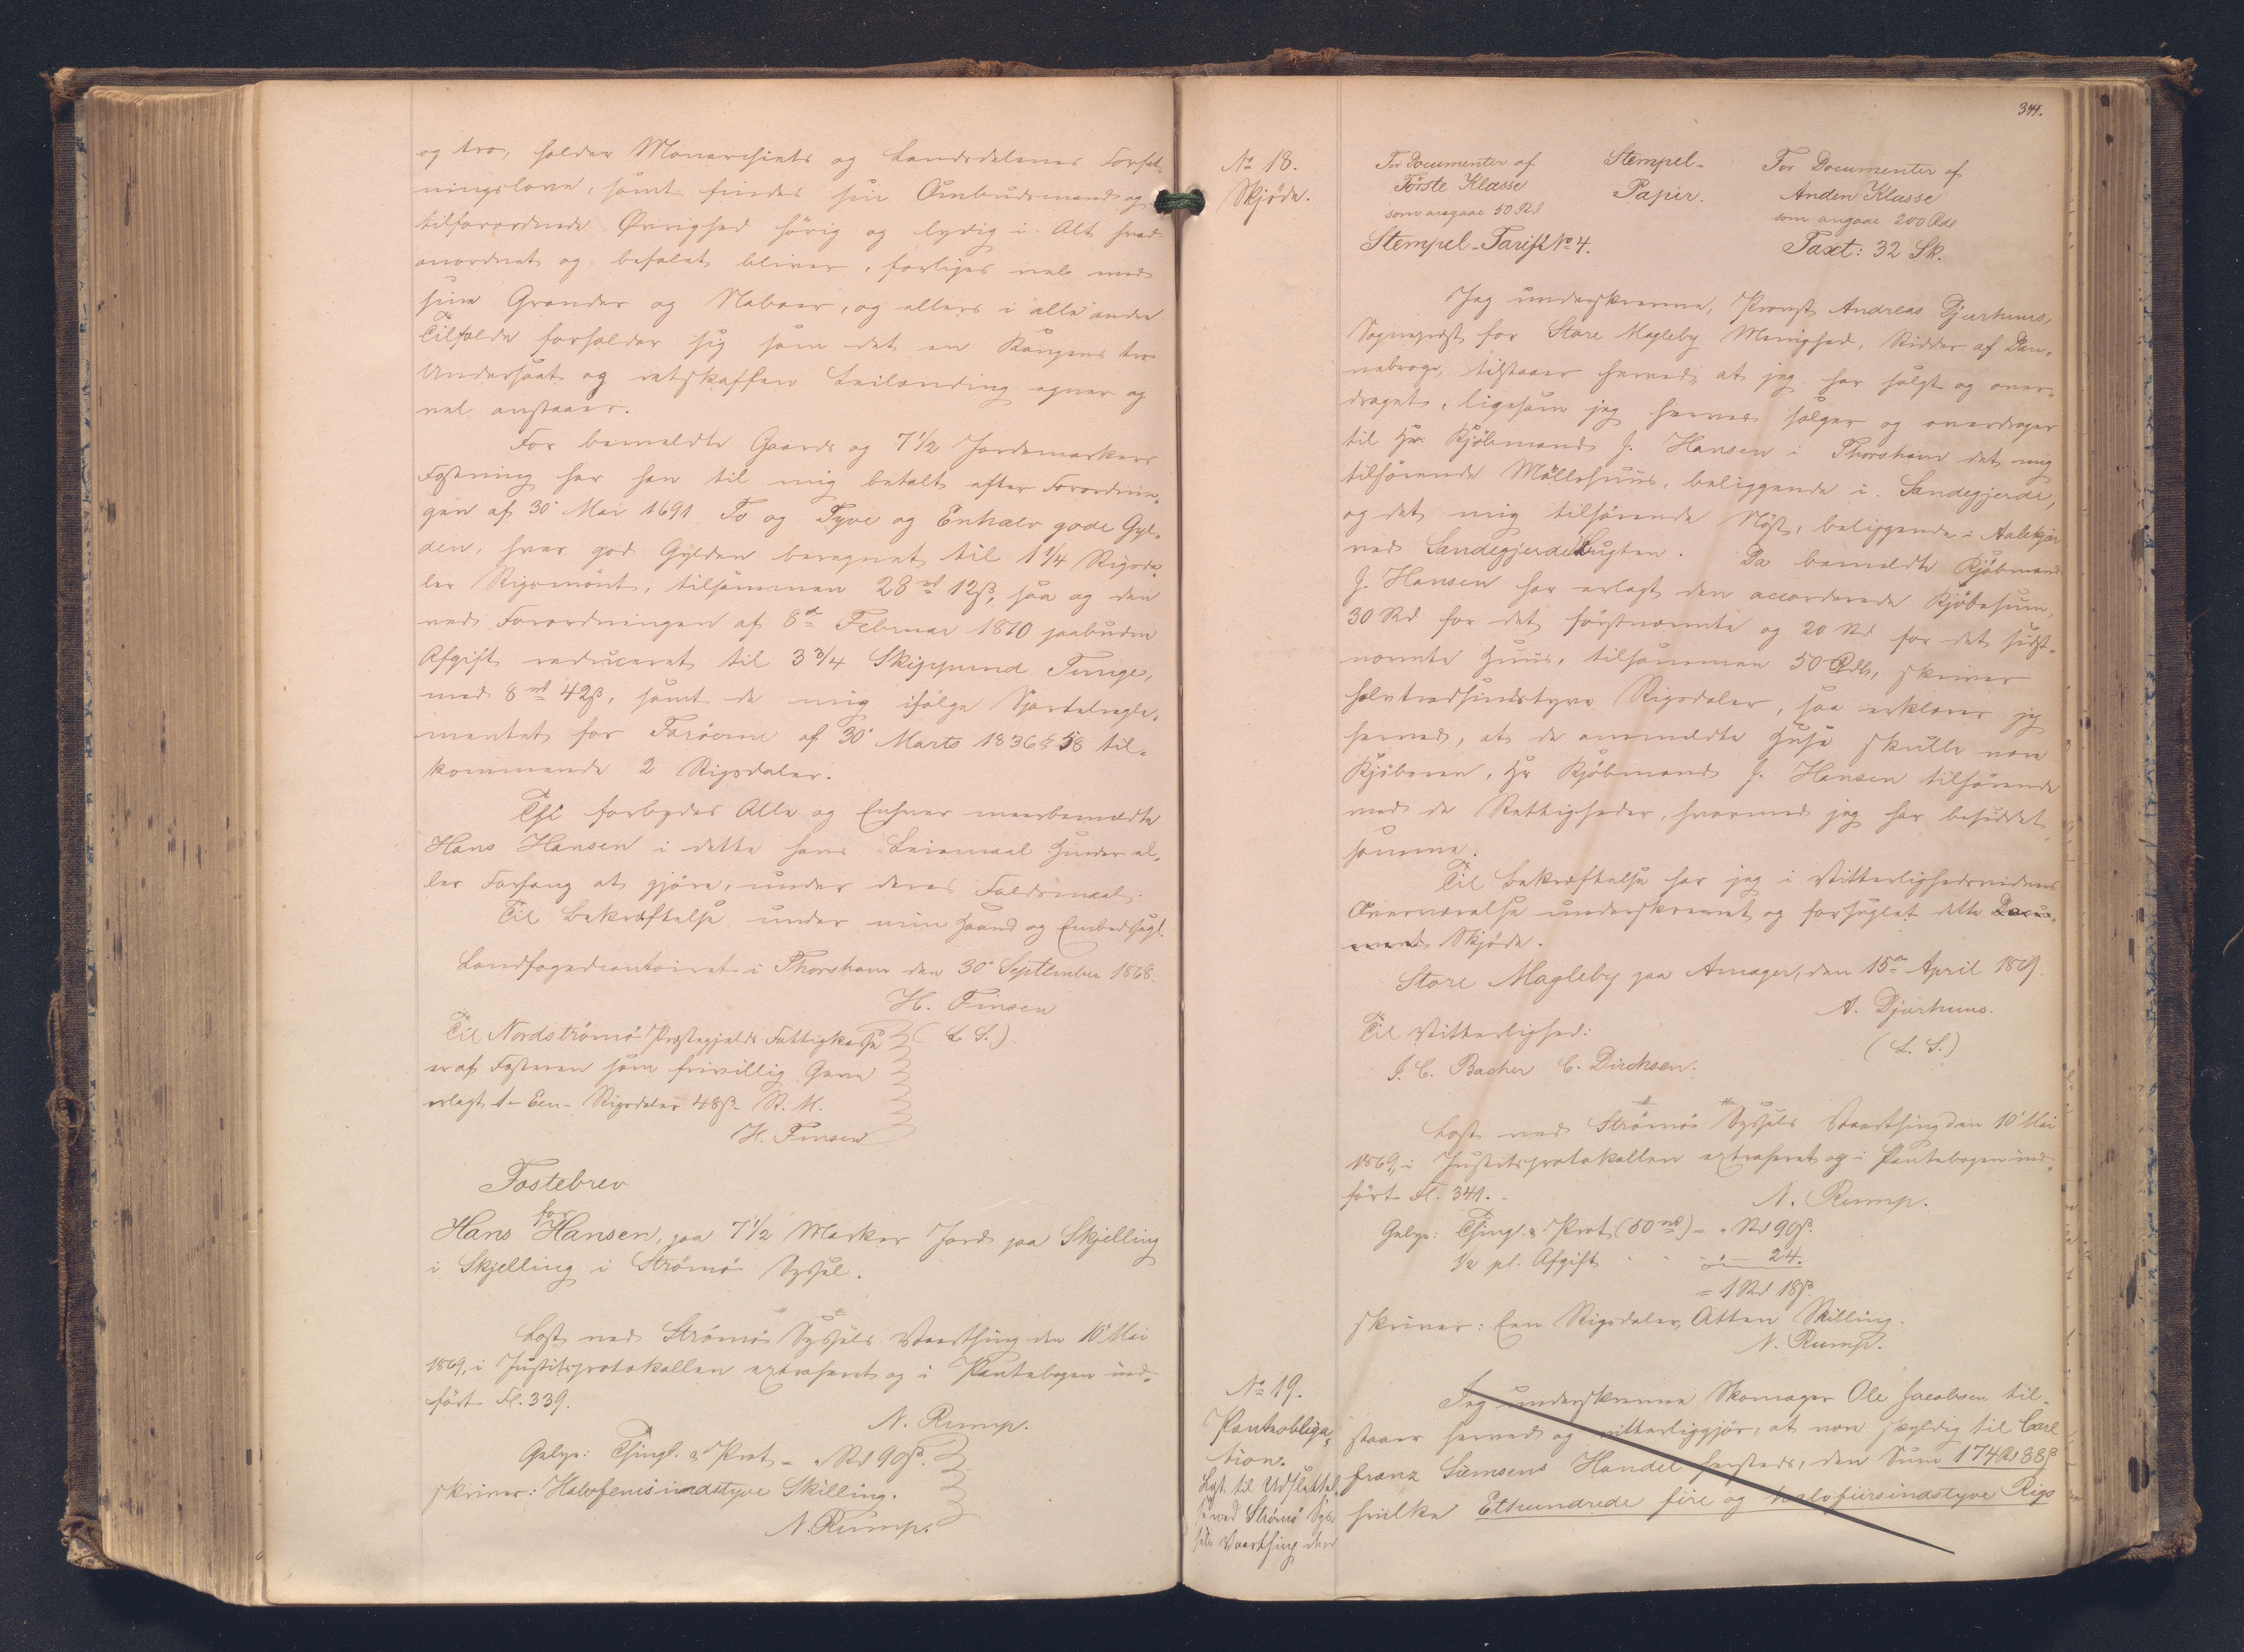 og tro, holder Monarchiets og Landsdelenes Forfat-
ningslove, samt findes sin Ombudsmand og
tilforordnede Øvrighed hörig og lydig i Alt hvad
anordnet og befalet bliver, forliges vel med
sine Grander og Naboer, og ellers i alle andre
Tilfælde forholder sig som det en Kongens tro
Undersaat og retskaffen Leilænding egner og
vel anstaaer.
For bemeldte Gaards og 7 1/2 Jordemarkers
Fæstning har han til mig betalt efter Forordnin-
gen af 30 Mai 1691 To og Tyve og Enhalv gode Gyl-
den, hver god Gylden beregnet til 1 1/4 Rigsda-
ler Rigsmönt, tilsammen 28 rd 12 ß, saa og den
ved Forordningen af 8de Februar 1810 paabudne
Afgift reduceret til 3 3/4 Skippund Tunge,
med 8 rd 42 ß, samt de mig ifölge Sportelregle-
mentet for Færöerne af 30 Marts 1836 § 58 til-
kommende 2 Rigsdaler.
Thi forbydes Alle og Enhver meerbemeldte
Hans Hansen i dette hans Leiemaal Hinder el-
ler Forfang at gjöre, under deres Faldsmaal.
Til Bekræftelse under min Haand og Embedssegl.
Landfogedcontoiret i Thorshavn den 30 September 1868.
H. Finsen
(L. S.)
Til Nordströmö Præstegjelds Fattigkasse
er af Fæsteren som frivillig Gave
erlagt 1 - Een - Rigsdaler 48 ß R. M.
H. Finsen
Fæstebrev
for
Hans Hansen, paa 7 1/2 Marker Jord paa Skjelling
i Skjelling i Strömö Syssel.
Læst ved Strömö Syssels Vaarthing den 10 Mai
1869, i Justitsprotokollen extraheret og i Pantebogen ind-
fört Fl. 339.
N. Rump.
Gebyr: Thingl. & Prot - " Rd 90 ß.
skriver: Halvfemsindstyve Skilling.
N. Rump.
341.
No 18.
Skjöde.
For Documenter af
Förste Klasse
som angaae 50 Rd
Stempel-Tarif No 4.
Stempel-
Papir.
For Documenter af
Anden Klasse
som angaae 200 Rdl
Taxt: 32 Sk.
Jeg underskrevne, Provst Andreas Djurhuus,
Sognepræst for Store Magleby Menighed, Ridder af Dan-
nebroge, tilstaaer herved, at jeg har solgt og over-
draget, ligesom jeg herved sælger og overdrager
til Hr. Kjöbmand J. Hansen i Thorshavn det mig
tilhörende Möllehuus, beliggende i Sandegjerde,
og det mig tilhörende Nöst, beliggende i Aalekjær
ved Sandegjerdebugten. Da bemeldte Kjöbmand
J. Hansen har erlagt den accorderede Kjöbesum,
30 Rd for det förstnævnte og 20 Rd for det sidst-
nævnte Huus, tilsammen 50 Rdl, skriver
halvtredsindstyve Rigsdaler, saa erklærer jeg
herved, at de ommeldte Huse skulle være
Kjöberen, Hr Kjöbmand J. Hansen tilhörende
med de Rettigheder, hvormed jeg har besiddet
samme.
Til Bekræftelse har jeg i Vitterlighedsvidners
Overværelse underskrevet og forseglet dette Docu-
ment Skjöde.
Store Magleby paa Amager, den 15de April 1869.
A. Djurhuus.
(L. S.)
Til Vitterlighed:
J. C. Bacher C. Dirchsen.
Læst ved Strömö Syssels Vaarthing den 10 Mai
1869, i Justitsprotokollen extraheret og i Pantebogen ind-
fört Fl. 341. -
N. Rump.
Gebyr: Thingl. & Prot (50 rd) - " Rd 90 ß.
1/2 pCt. Afgift - - - " - 24.
= 1 Rd 18 ß.
skriver: Een Rigsdaler, Atten Skilling.
N. Rump.
No 19.
Pantobliga-
tion.
Lyst til Udslettel-
se ved Strömö Sys-
sels Vaarthing den
Jeg underskrevne Skomager Ole Jacobsen til-
staaer herved og vitterliggjör, at være skyldig til Carl
Franz Siemsens Handel hersteds, den Sum 174 Rd 88 ß
hvilke Ethundrede fire og halvfiirsindstyve Rigs